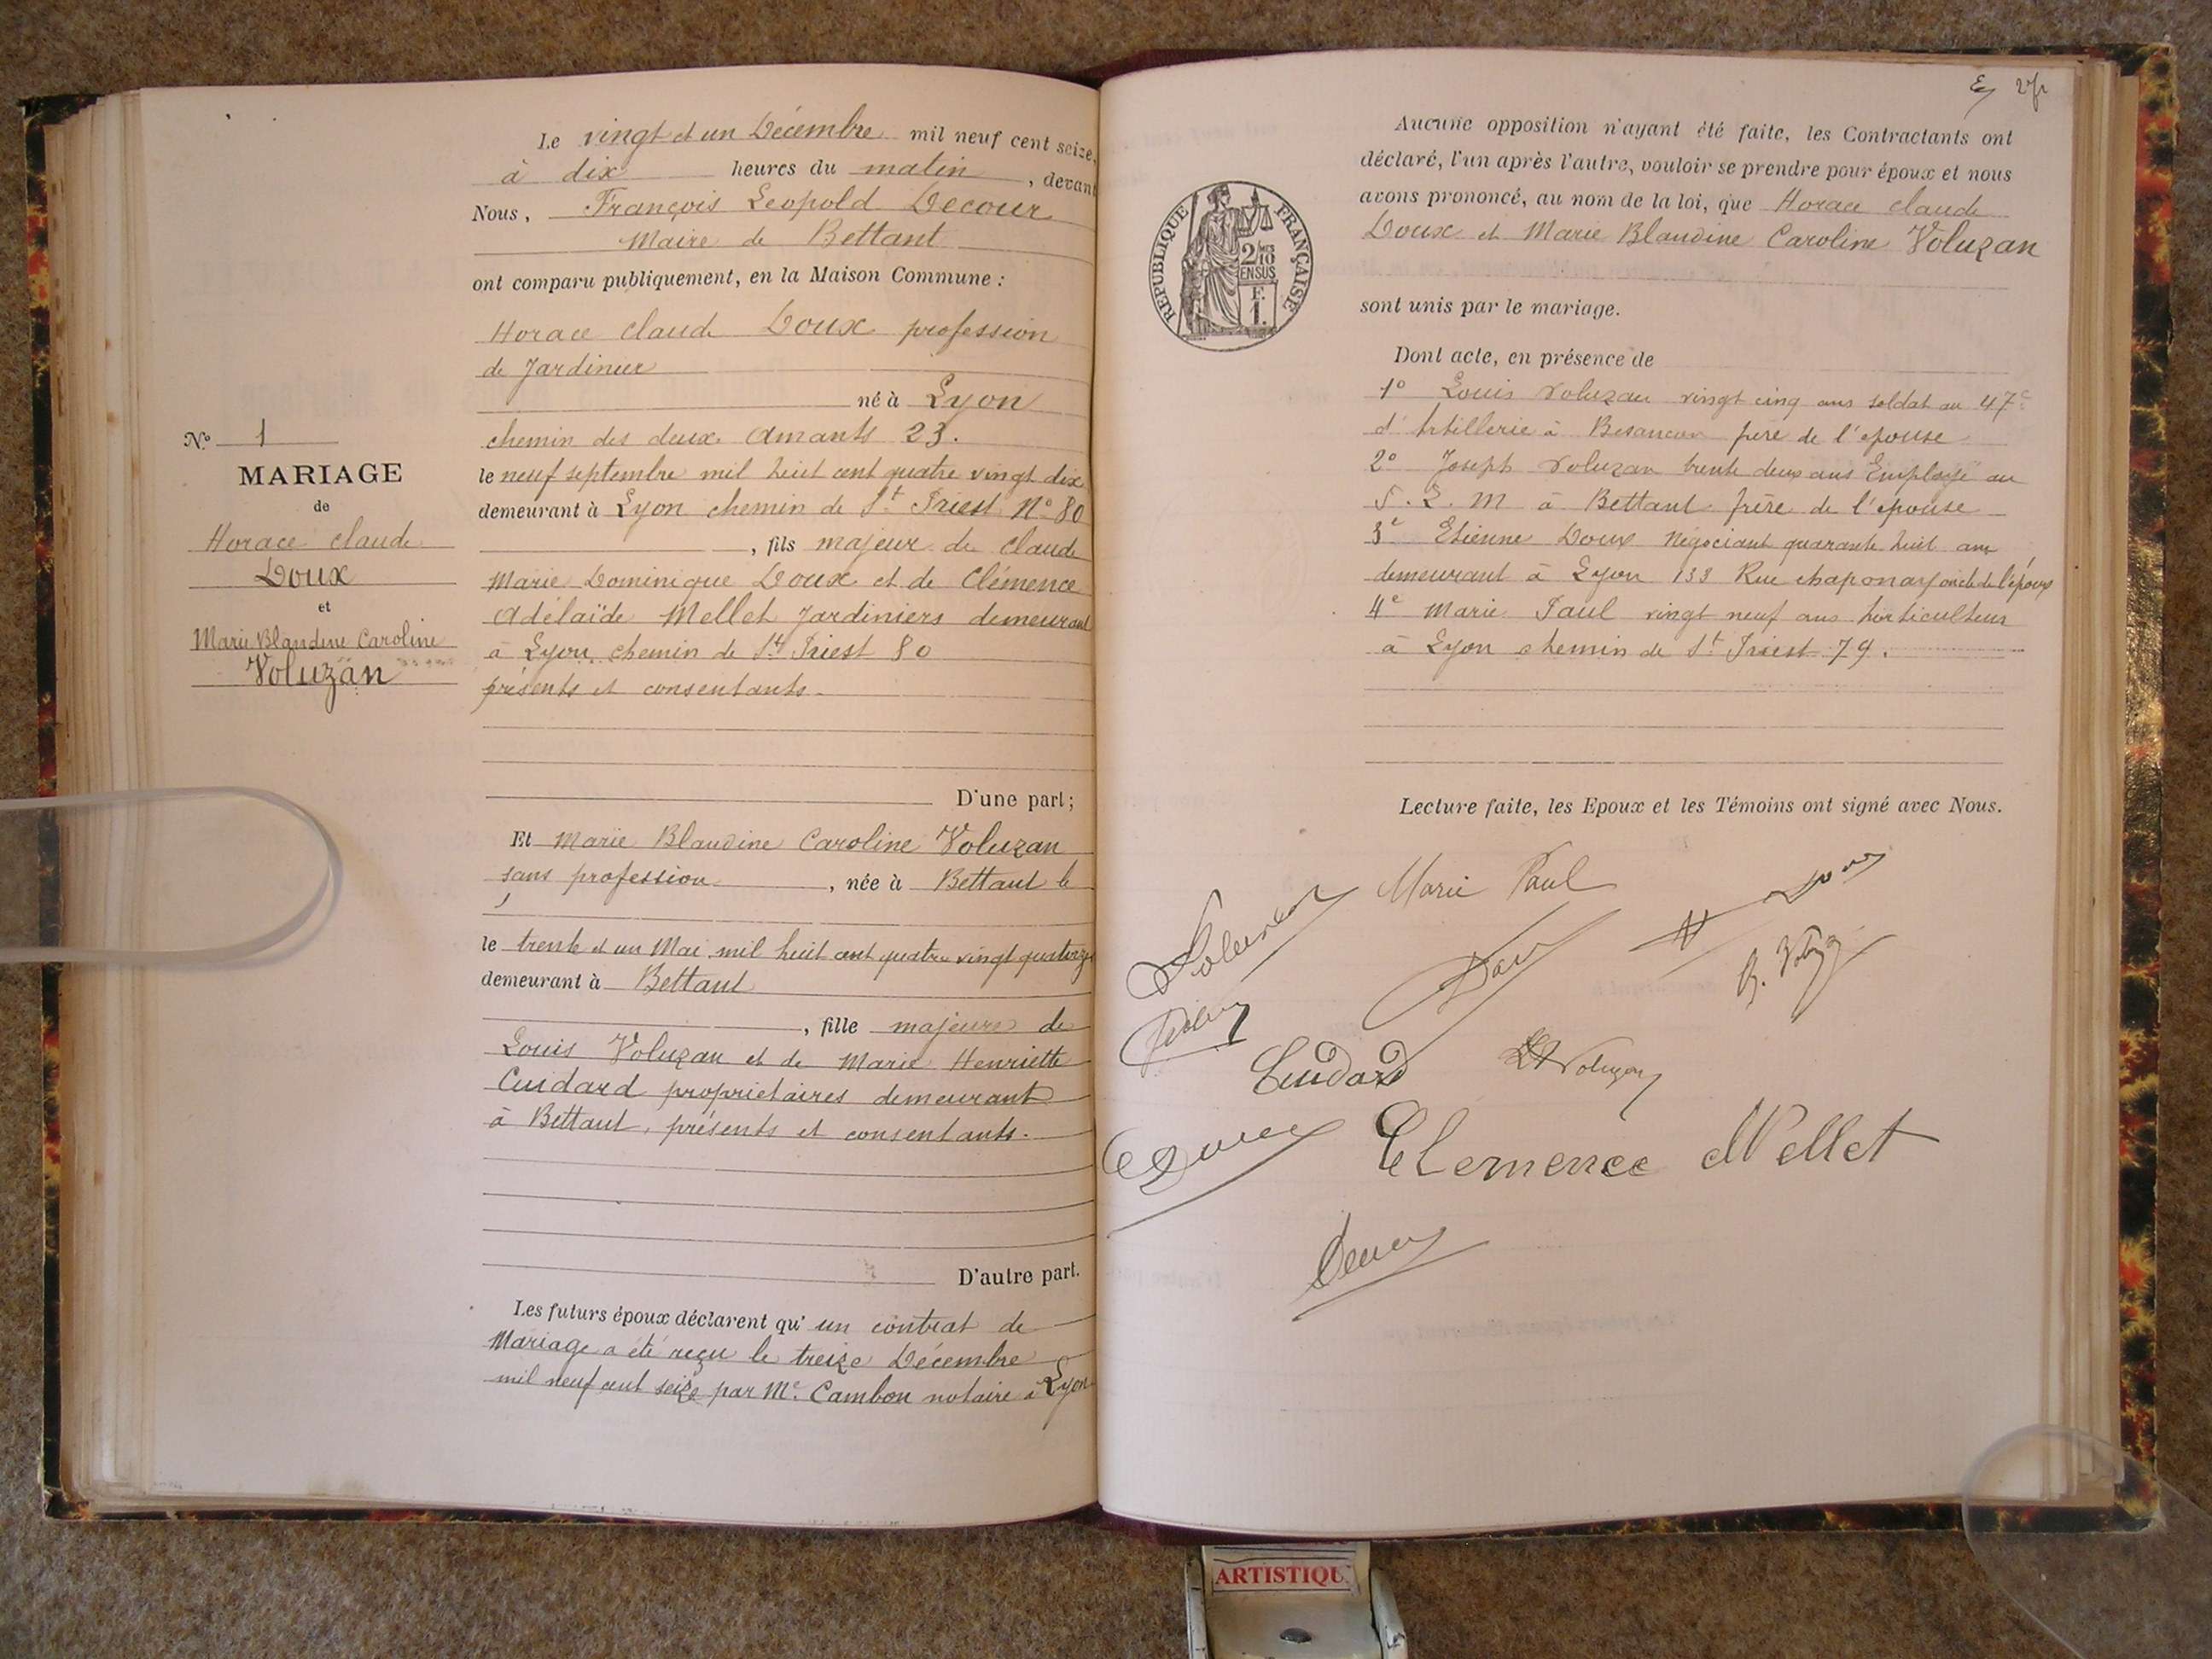 Le vingt et un Décembre mil neuf cent seize,
à dix heures du matin, devant
Nous, François Leopold Decour
Maire de Bettant
ont comparu publiquement, en la Maison Commune :
Horace Claude Doux profession
de Jardinier
né à Lyon
chemin des deux Amants 23.
le neuf septembre mil huit cent quatre vingt dix
demeurant à Lyon chemin de St Priest No 80
, fils majeur de Claude
Marie Dominique Doux et de Clémence
Adélaïde Mellet Jardiniers demeurant
à Lyon chemin de St Priest 80
présents et consentants.
D'une part ;
Et Marie Blandine Caroline Voluzan
sans profession, née à Bettant le
le trente et un Mai mil huit cent quatre vingt quatorze
demeurant à Bettant
, fille majeure de
Louis Voluzan et de Marie Henriette
Cuidard proprietaires demeurant
à Bettant, présents et consentants.
D'autre part.
Les futurs époux déclarent qu'un contrat de
Mariage a été reçu le treize Décembre
mil neuf cent seize par Me. Cambon notaire à Lyon
No 1
MARIAGE
de
Horace Claude
Doux
et
Marie Blandine Caroline
Voluzan
Aucune opposition n'ayant été faite, les Contractants ont
déclaré, l'un après l'autre, vouloir se prendre pour époux et nous
avons prononcé, au nom de la loi, que Horace Claude
Doux et Marie Blandine Caroline Voluzan
sont unis par le mariage.
Dont acte, en présence de
1o Louis Voluzan vingt cinq ans soldat au 47e
d'Artillerie à Besançon frère de l'épouse
2o Joseph Voluzan trente deux ans Employé au
P. L. M à Bettant frère de l'épouse
3e Etienne Doux Négociant quarante huit ans
demeurant à Lyon 133 Rue chaponay oncle de l'époux
4e Marie Paul vingt neuf ans horticulteur
à Lyon chemin de St Priest 79.
Lecture faite, les Epoux et les Témoins ont signé avec Nous.
REPUBLIQUE FRANÇAISE
2/10
EN SUS
F.
1.
Marie Paul
Cuidard
Voluzan
Clemence Mellet
ARTISTIQU